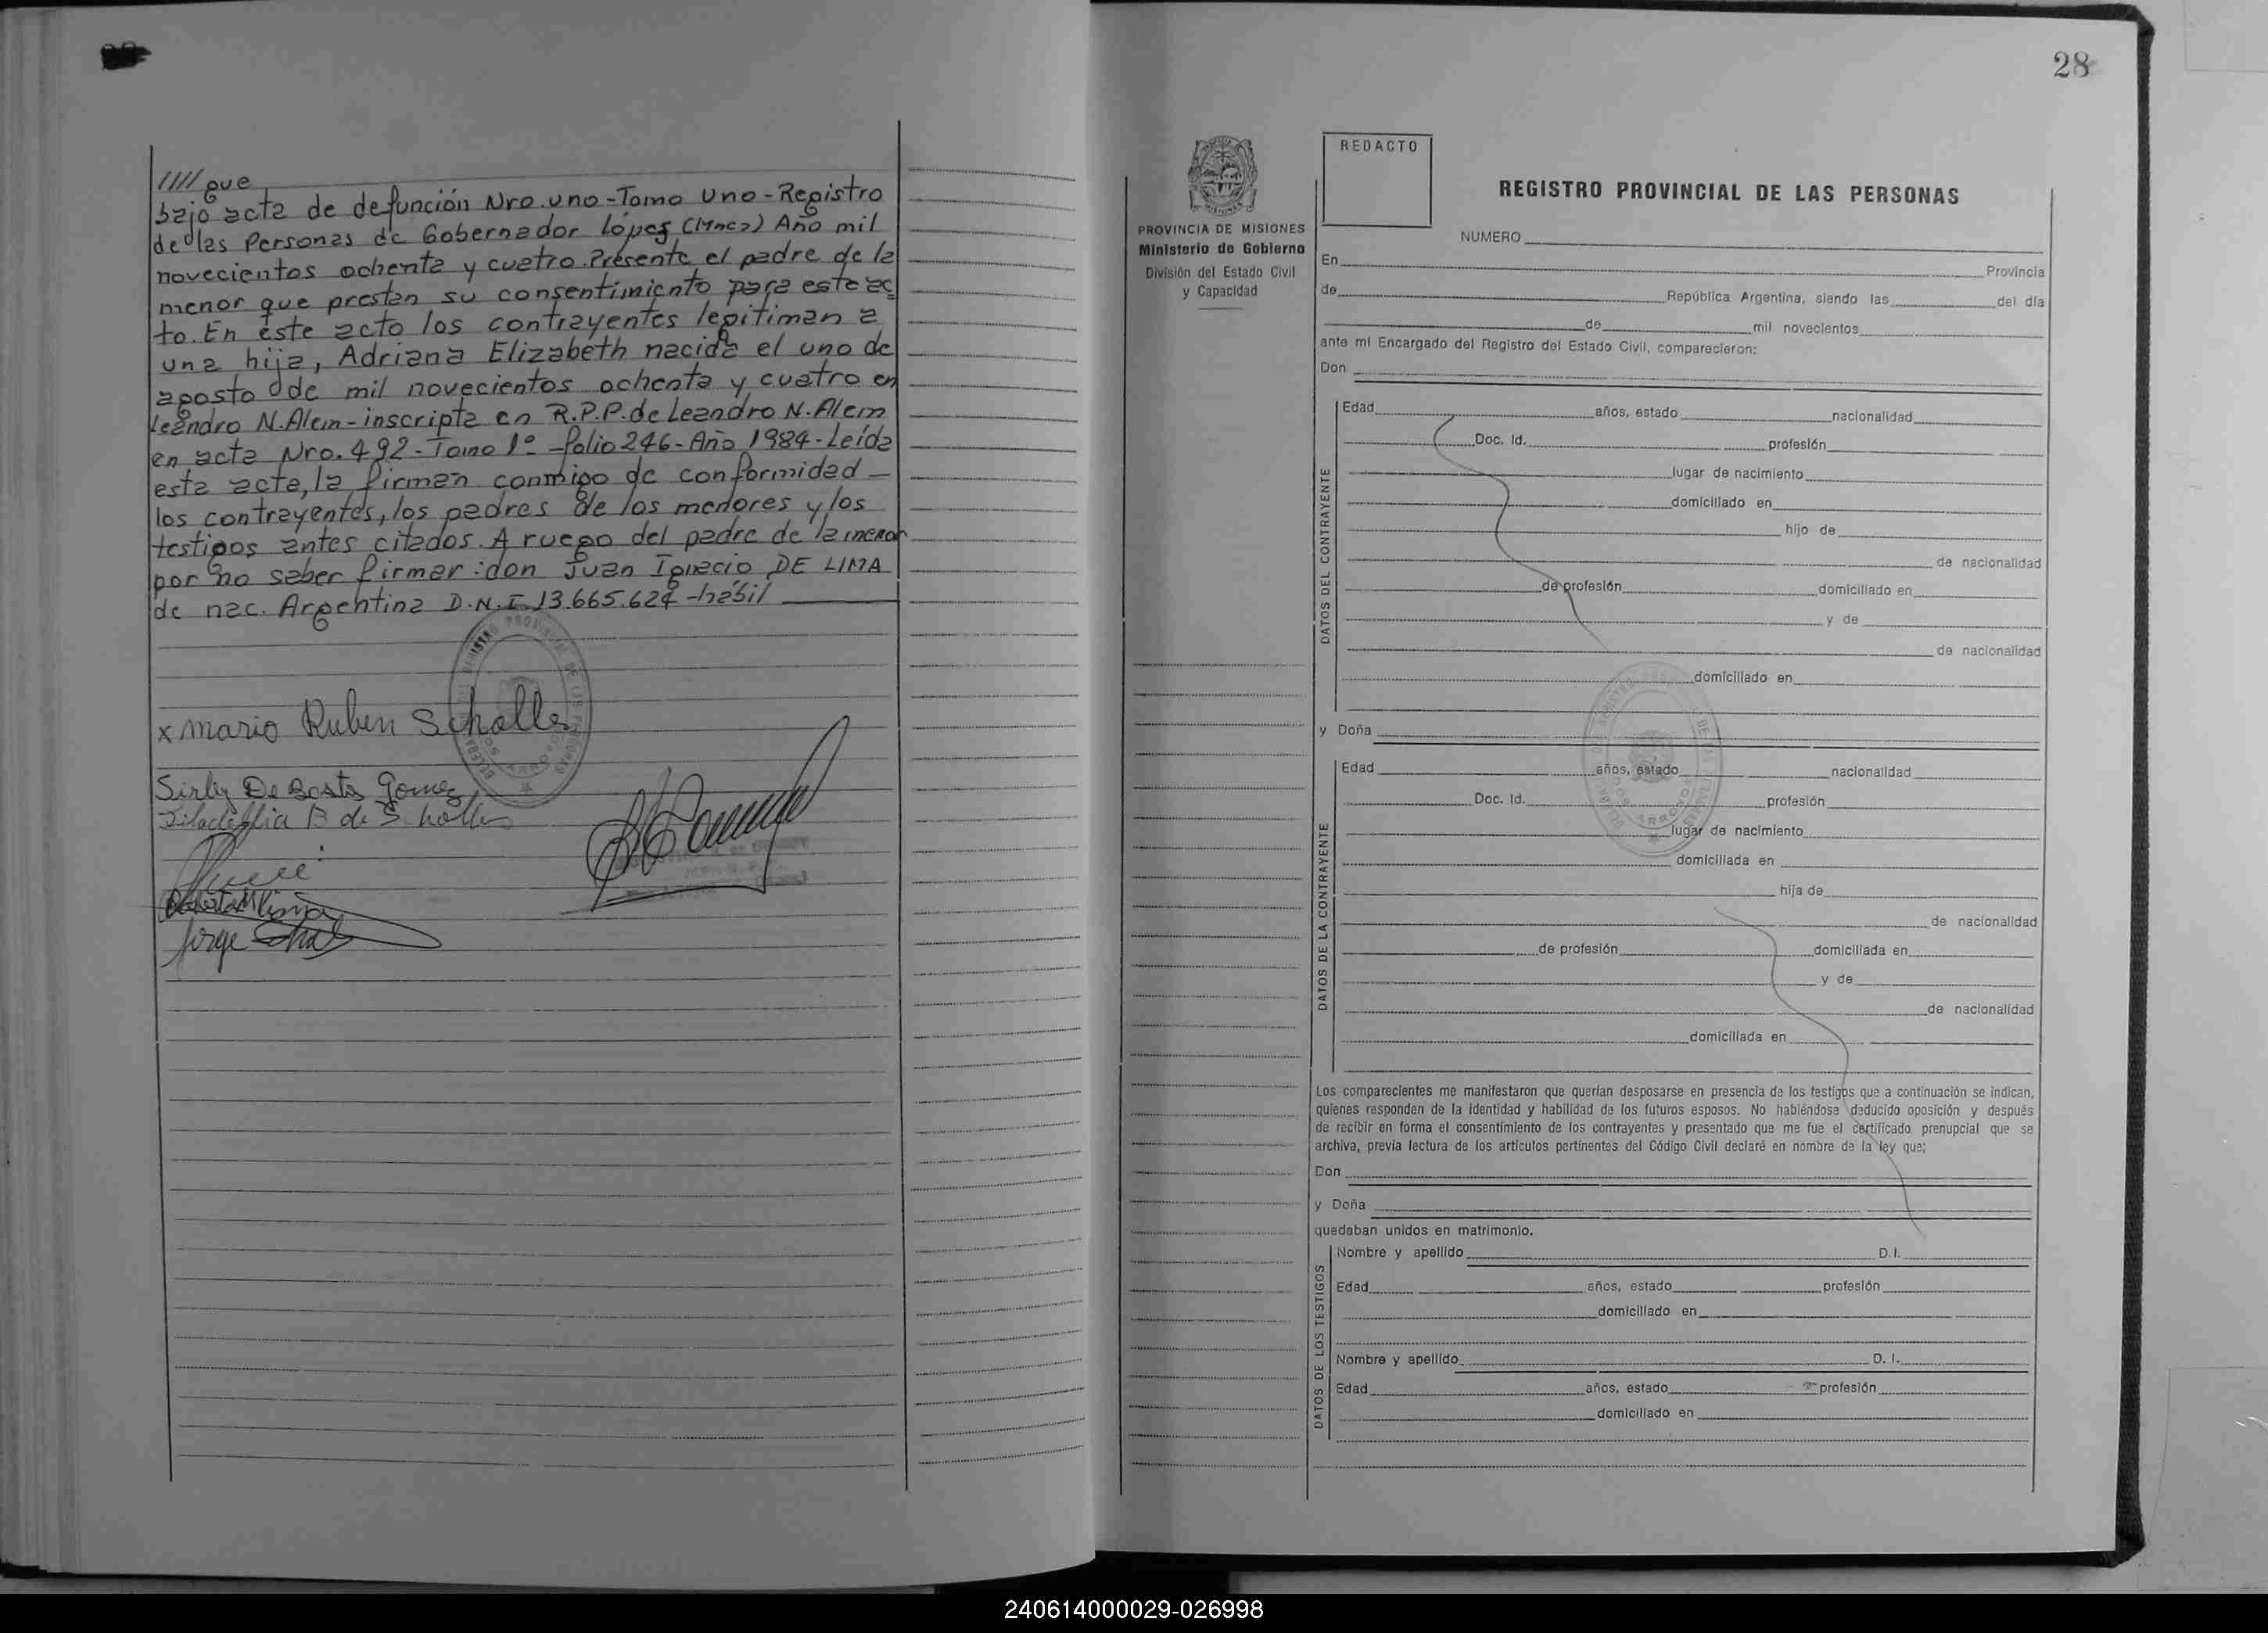 //// que
bajo acta de defunción Nro. uno-Tomo Uno-Registro
de las Personas de Gobernador López Año mil
novecientos ochenta y cuatro. Presente el padre de la
menor que prestan su consentimiento para este ac
to. En este acto los contrayentes legitiman a
una hija, Adriana Elizabeth nacida el uno de
agosto de mil novecientos ochenta y cuatro en
Leandro N. Alem-inscripta en R.P.P. de Leandro N. Alem
en acta Nro. 492-Tomo 1º-folio 246-Año 1984-Leída
esta acta, la firman conmigo de conformidad-
los contrayentes, los padres de los menores y los
testigos antes citados. A ruego del padre de la menor
por no saber firmar: don Juan Ignacio DE LIMA
de nac. Argentina D.N.I. 13.665.624-hábil
x Mario Ruben Scholles
Sirley Gomez
Jorge
28
REDACTO
PROVINCIA DE MISIONES
Ministerio de Gobierno
División del Estado Civil
y Capacidad
REGISTRO PROVINCIAL DE LAS PERSONAS
NUMERO
En Provincia
de República Argentina, siendo las del día
de mil novecientos
ante mi Encargado del Registro del Estado Civil, comparecieron:
Don
DATOS DEL CONTRAYENTE
Edad años, estado nacionalidad
Doc. Id. profesión
lugar de nacimiento
domiciliado en
hijo de
de nacionalidad
de profesión domiciliado en
y de
de nacionalidad
domiciliado en
y Doña
DATOS DE LA CONTRAYENTE
Edad años, estado nacionalidad
Doc. Id. profesión
lugar de nacimiento
domiciliada en
hija de
de nacionalidad
de profesión domiciliada en
y de
de nacionalidad
domiciliada en
Los comparecientes me manifestaron que querían desposarse en presencia de los testigos que a continuación se indican,
quienes responden de la identidad y habilidad de los futuros esposos. No habiéndose deducido oposición y después
de recibir en forma el consentimiento de los contrayentes y presentado que me fue el certificado prenupcial que se
archiva, previa lectura de los artículos pertinentes del Código Civil declaré en nombre de la ley que;
Don
y Doña
quedaban unidos en matrimonio.
DATOS DE LOS TESTIGOS
Nombre y apellido D.I.
Edad años, estado profesión
domiciliado en
Nombre y apellido D. I.
Edad años, estado profesión
domiciliado en
240614000029-026998